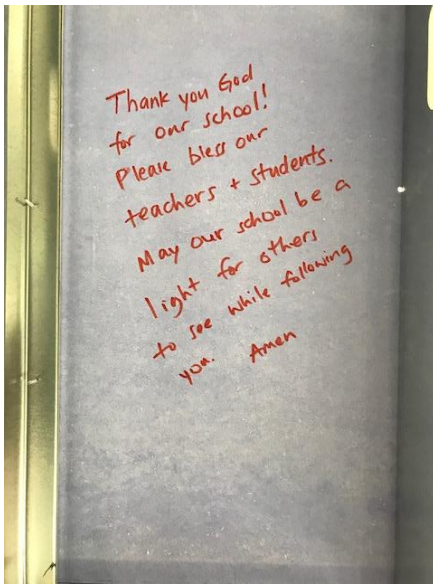 Thank you God
for our school!
Please bless our
teachers + students.
May our school be a
light for others
to see while following
you. Amen